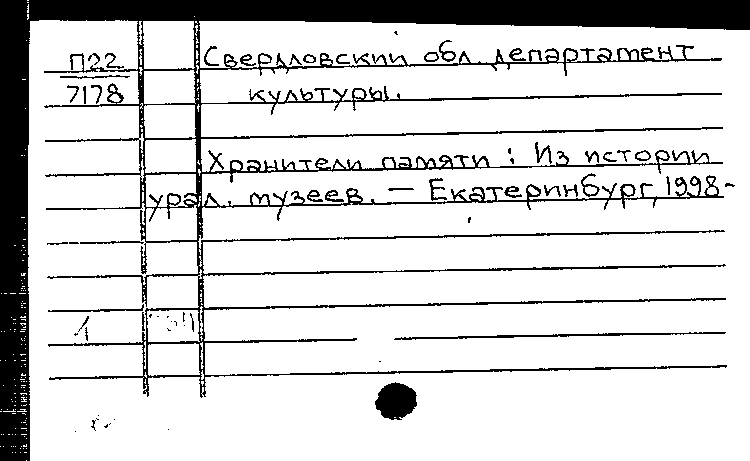 П22 Свердловский обл. департамент
7178 культуры.
Хранители памяти : Из истории
урал. музеев. — Екатеринбург, 1998-
1